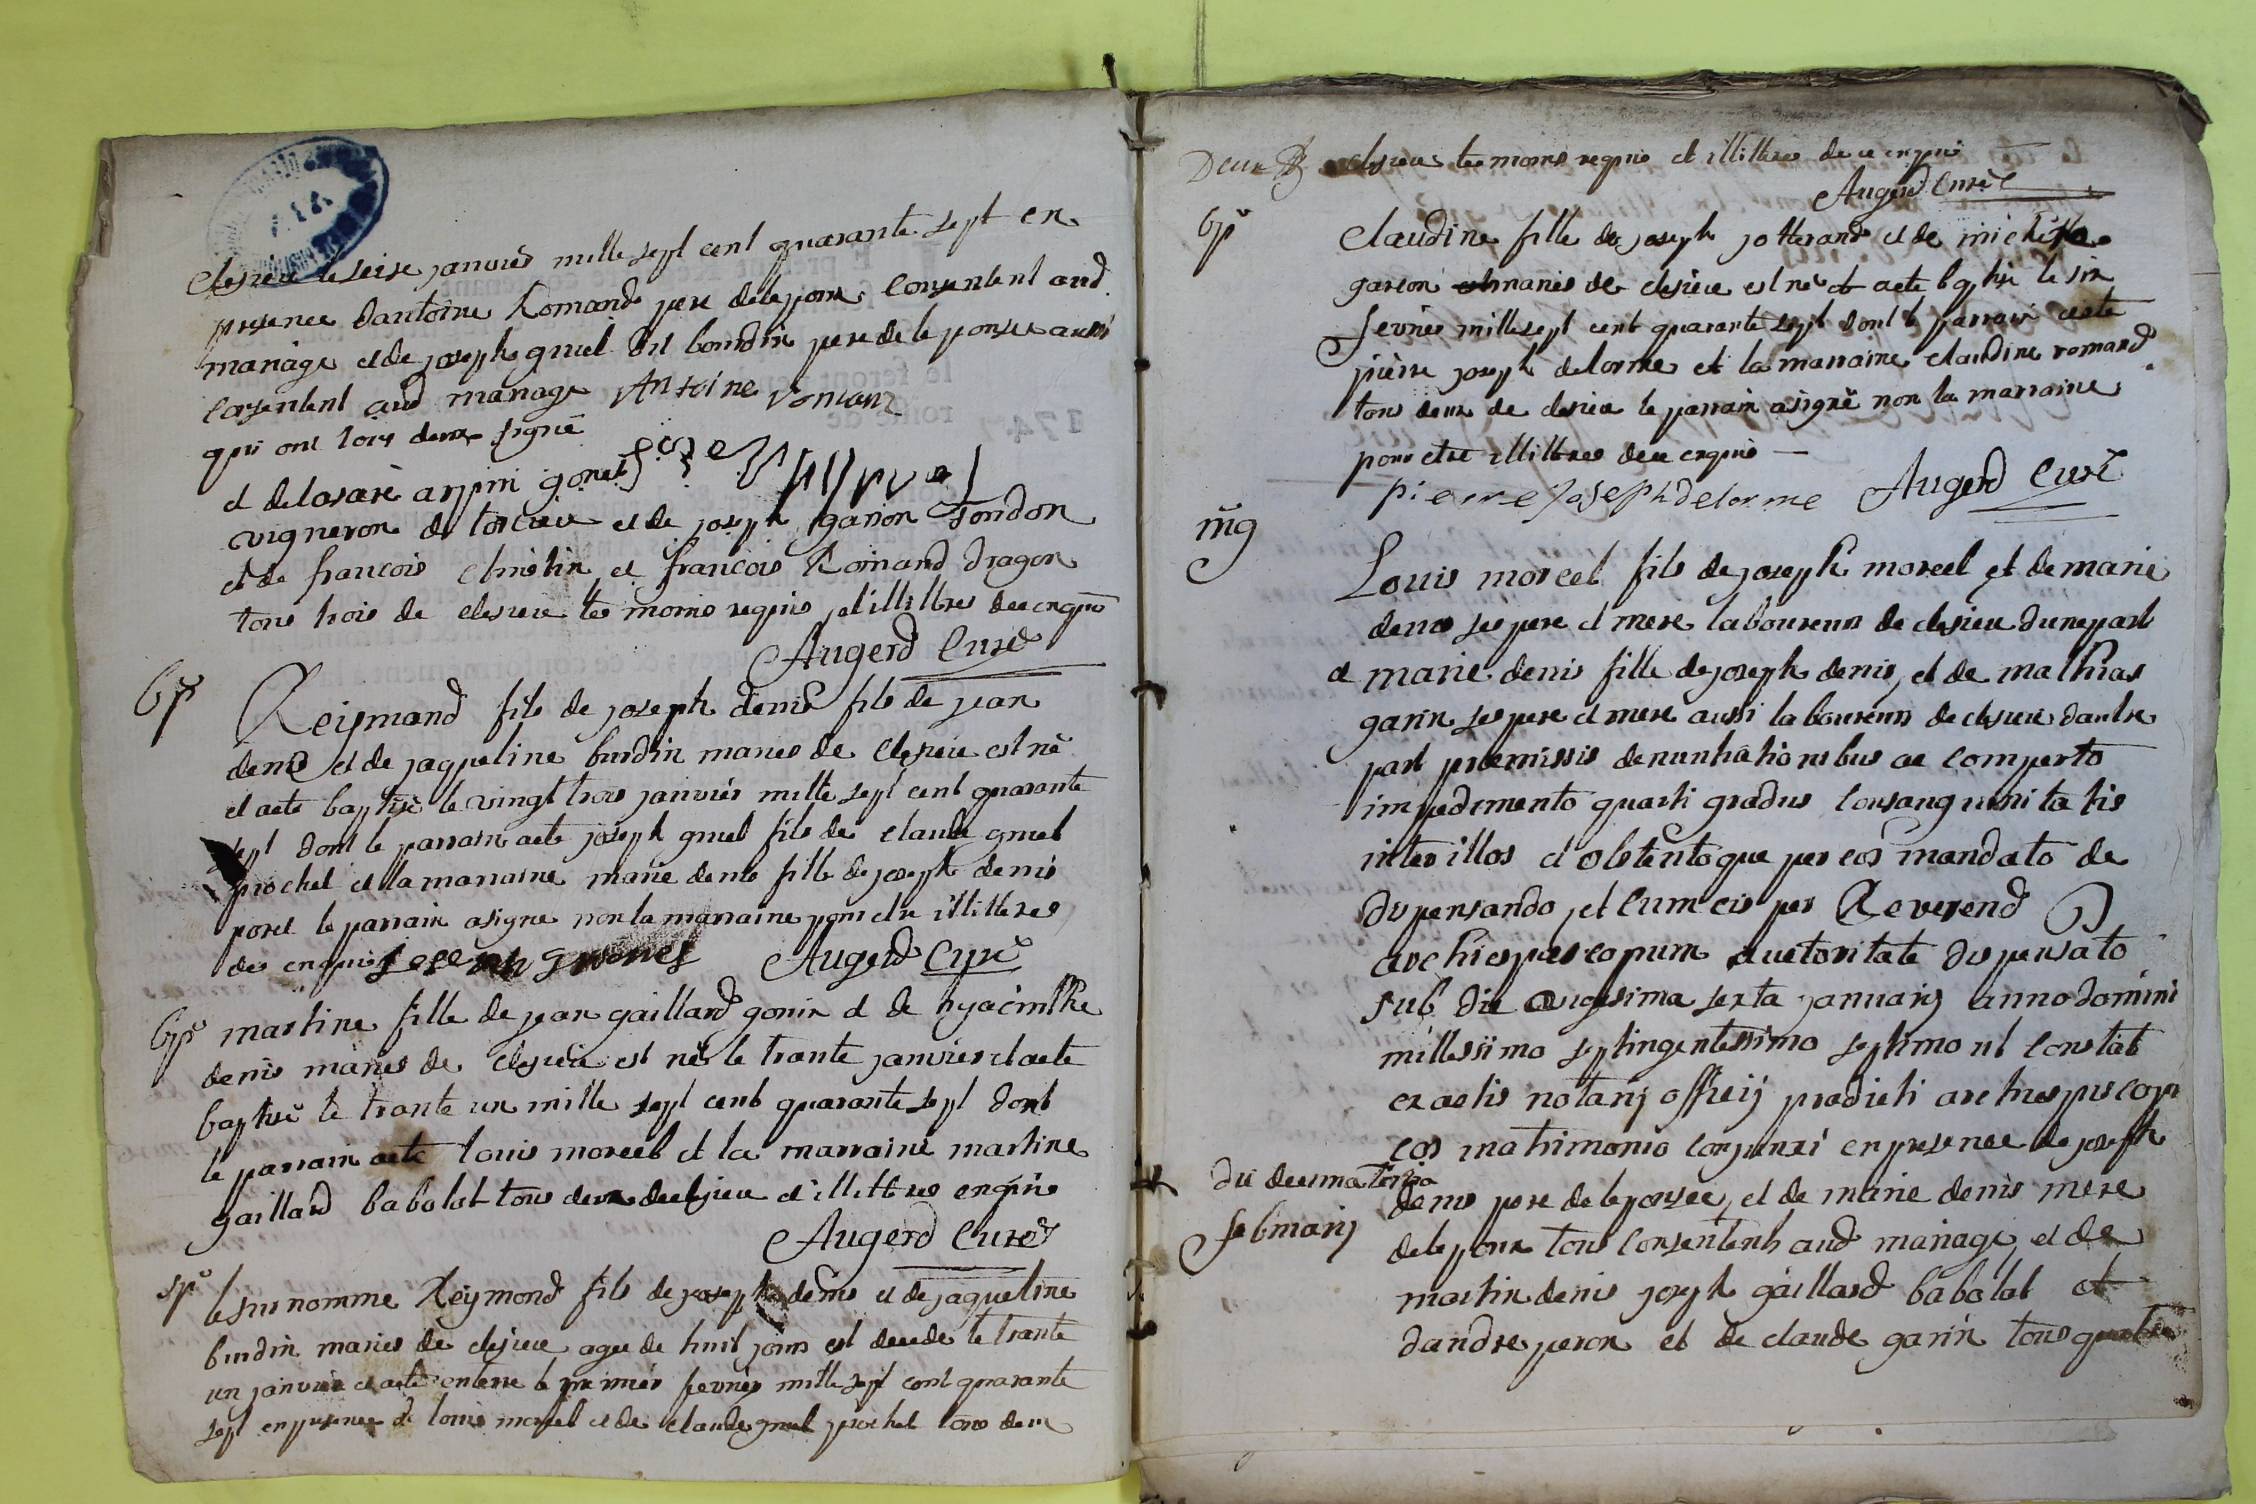 clesieu le seise janvier mille sept cent quarante sept en
presence dantoine Romand pere delepoux consentent aud
mariage et de joseph gruel dit bourdin pere de leponsee aussi
consentent aud mariage Antoine romant
qui ont tous deux signé
et delasare arpin gonet
vigneron de torcieu et de joseph garion Tondon
et de francois christin et francois Romand dragon
tous trois de clesieu temoins requis et illiltres dece enquis
Augerd Curé
bp
Reismand fils de joseph denis fils de jean
denis et de jaqueline burdin mariés de clesieu est né
et aeté baptisé le vingt trois janvier mille sept cent quarante
sept dont le parrain aeté joseph gruel fils de claude gruel
prochel et la marraine marie denis fille de joseph denis
poret le parrain a signe non la marraine pour etre illiltres
de enquis Augerd Curé
bp
martine fille de jean gaillard gonin et de hyacinthe
denis mariés de clesieu est né le trante janvier et aeté
baptisé le trante un mille sept cent quarante sept dont
le parrain aeté louis morcel et la marraine martine
gaillard babolat tous deux de clesieu et illettres enquis
Augerd Curé
sp
le sus nomme Reymond fils de joseph denis et de jaqueline
burdin mariés de clesieu agee de huit jours est decede le trante
un janvier et aeté enterre le premier fevrier mille sept cent quarante
sept en presence de louis morcel et de claude gruel prochel tous deux
Deux
clesieu temoins requis et illiltres de ce enquis
Augerd Curé
bp
Claudine fille de joseph jotterand et de michelle
garion mariés de clesieu est né et aeté baptise le six
fevrier mille sept cent quarante sept dont le parrain aeté
pierre joseph delorme et la marraine claudine romand
tous deux de clesieu le parrain a signé non la marraine
pour etre illiltres dece enquis
pierre joseph delorme Augerd Curé
mg
Louis morcel fils de joseph morcel et de marie
denis ses pere et mere laboureurs de clesieu dune part
et marie denis fille de joseph denis, et de mathias
garin ses pere et mere aussi laboureurs de clesieu dautre
part premissis denuntiationibus ac comperto
impedimento quarti gradus consanguinitatis
inter illos et obtentoque per eos mandato de
dispensando, et cum eis per Reverend D
archiespiscopum auctoritate dispensato
sub die vigesima sexta januarij anno domini
millessimo septingentessimo septimo ut constat
ex actis notarij officij predicti archiespiscopi
eos matrimonio conjunxi en presence de joseph
die decima tertia
denis pere de leponsee, et de marie denis mere
februarij
delepoux tous consentents aud mariage, et de
martin denis joseph gaillard babolat et
dandre peron et de claude garin tous quatre